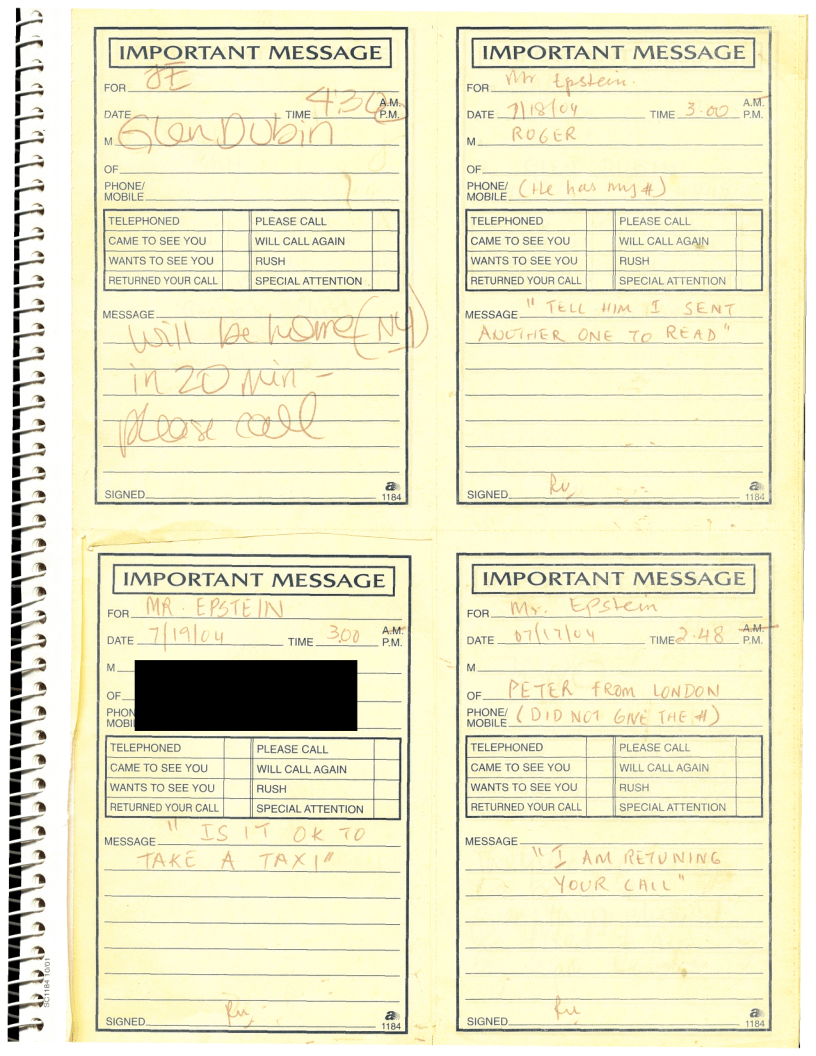 IMPORTANT MESSAGE
FOR JE
A.M.
DATE TIME 4:30 P.M.
M Glen Dubin
OF
PHONE/
MOBILE
TELEPHONED PLEASE CALL
CAME TO SEE YOU WILL CALL AGAIN
WANTS TO SEE YOU RUSH
RETURNED YOUR CALL SPECIAL ATTENTION
MESSAGE
will be home (NY)
in 20 min -
please call
SIGNED
1184
IMPORTANT MESSAGE
FOR Mr Epstein.
A.M.
DATE 7/18/04 TIME 3:00 P.M.
M ROGER
OF
PHONE/
MOBILE (He has my #)
TELEPHONED PLEASE CALL
CAME TO SEE YOU WILL CALL AGAIN
WANTS TO SEE YOU RUSH
RETURNED YOUR CALL SPECIAL ATTENTION
MESSAGE " TELL HIM I SENT
ANOTHER ONE TO READ"
SIGNED
1184
IMPORTANT MESSAGE
FOR MR. EPSTEIN
A.M.
DATE 7/19/04 TIME 3,00 P.M.
M
OF
PHON
MOBI
TELEPHONED PLEASE CALL
CAME TO SEE YOU WILL CALL AGAIN
WANTS TO SEE YOU RUSH
RETURNED YOUR CALL SPECIAL ATTENTION
MESSAGE " IS IT OK TO
TAKE A TAXI"
SIGNED
1184
IMPORTANT MESSAGE
FOR Mr. Epstein
A.M.
DATE 07/17/04 TIME 2:48 P.M.
M
OF PETER FROM LONDON
PHONE/
MOBILE (DID NOT GIVE THE #)
TELEPHONED PLEASE CALL
CAME TO SEE YOU WILL CALL AGAIN
WANTS TO SEE YOU RUSH
RETURNED YOUR CALL SPECIAL ATTENTION
MESSAGE
"I AM RETUNING
YOUR CALL"
SIGNED
1184
SC1184 10/01